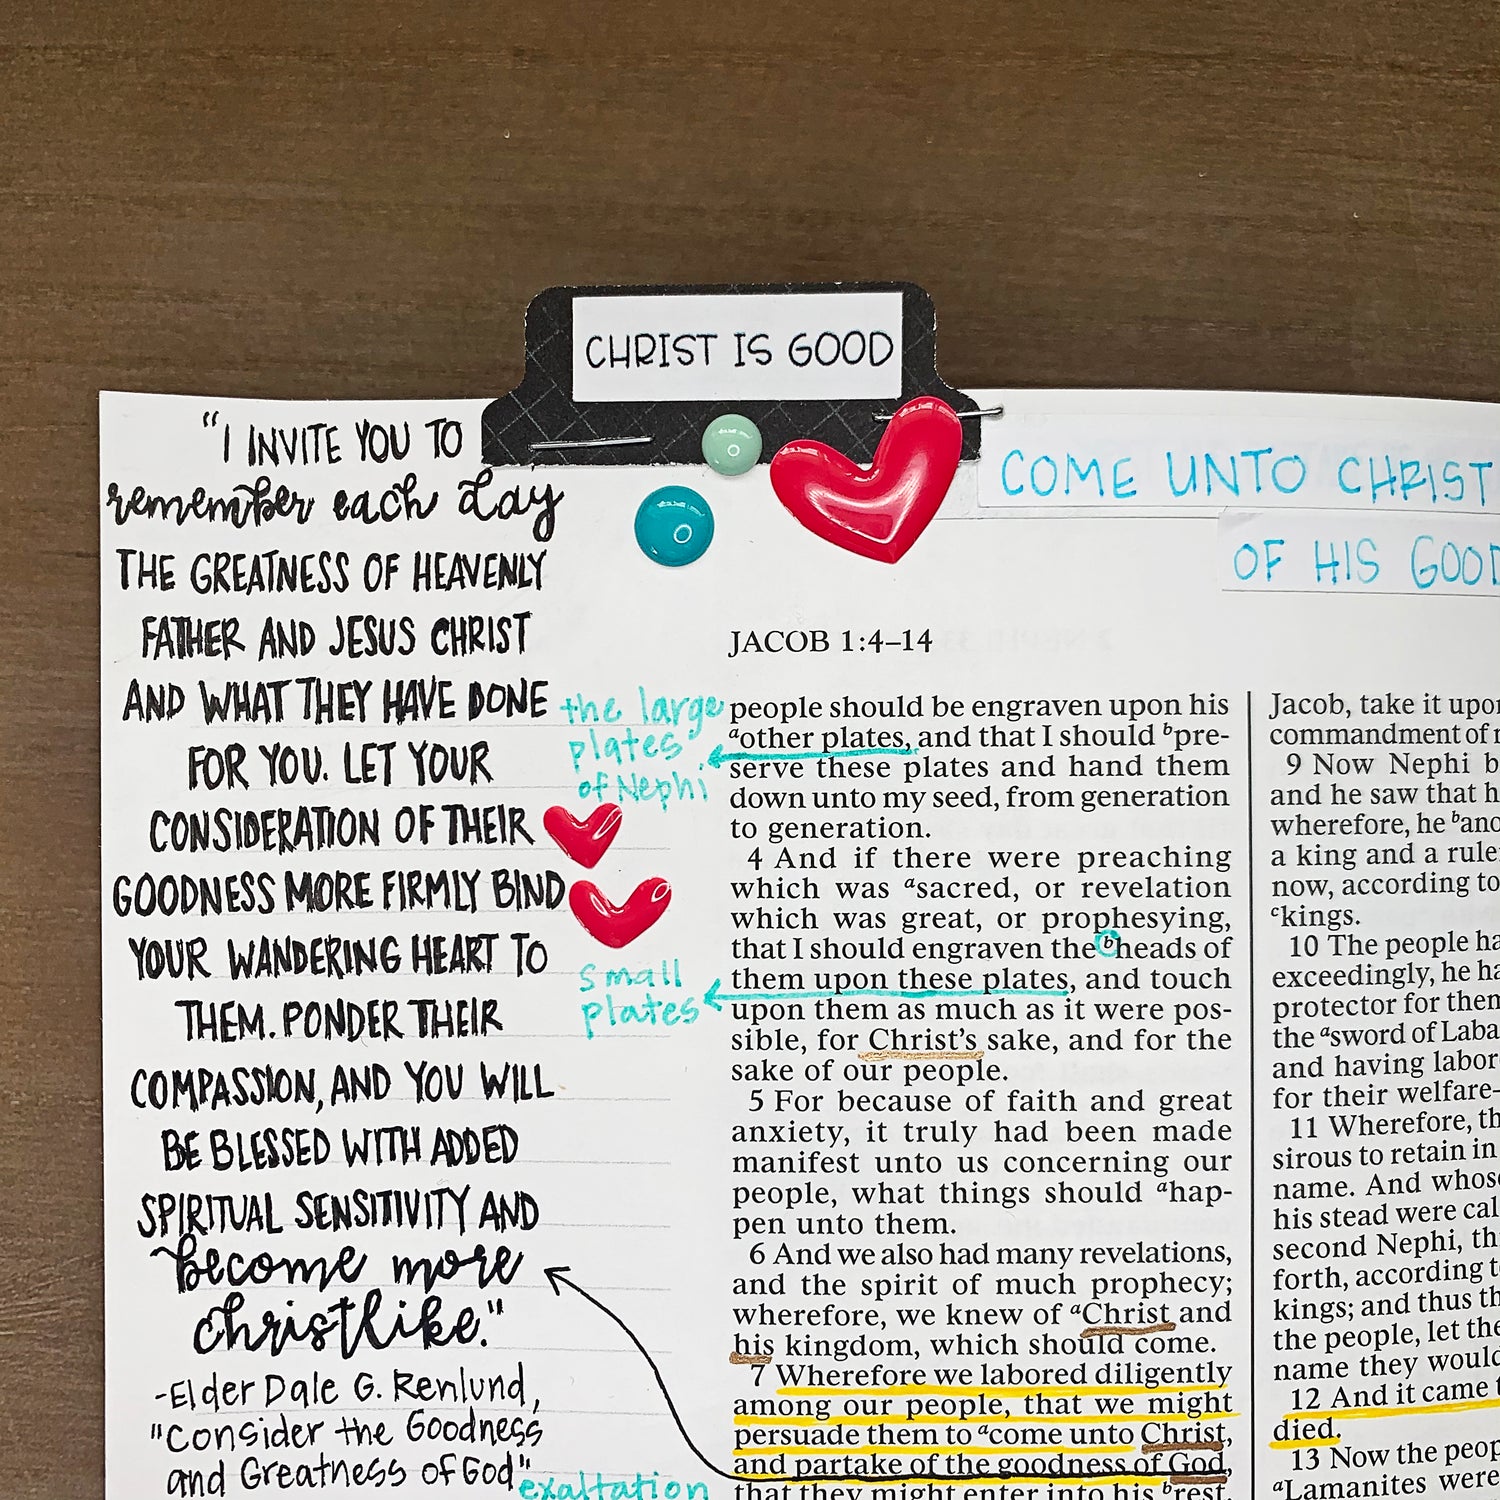 CHRIST IS GOOD
"I INVITE YOU TO
remember each day
THE GREATNESS OF HEAVENLY
FATHER AND JESUS CHRIST
AND WHAT THEY HAVE DONE
FOR YOU. LET YOUR
CONSIDERATION OF THEIR
GOODNESS MORE FIRMLY BIND
YOUR WANDERING HEART TO
THEM. PONDER THEIR
COMPASSION, AND YOU WILL
BE BLESSED WITH ADDED
SPIRITUAL SENSITIVITY AND
become more
christlike."
-Elder Dale G. Renlund,
"Consider the Goodness
and Greatness of God"
COME UNTO CHRIST
OF HIS
the large
plates
of Nephi
small
plates
exaltation
JACOB 1:4–14
people should be engraven upon his
a other plates, and that I should b pre-
serve these plates and hand them
down unto my seed, from generation
to generation.
4 And if there were preaching
which was a sacred, or revelation
which was great, or prophesying,
that I should engraven the b heads of
them upon these plates, and touch
upon them as much as it were pos-
sible, for Christ's sake, and for the
sake of our people.
5 For because of faith and great
anxiety, it truly had been made
manifest unto us concerning our
people, what things should a hap-
pen unto them.
6 And we also had many revelations,
and the spirit of much prophecy;
wherefore, we knew of a Christ and
his kingdom, which should come.
7 Wherefore we labored diligently
among our people, that we might
persuade them to a come unto Christ,
and partake of the goodness of God,
that they might enter into his b rest,
Jacob, take it upon
commandment of
9 Now Nephi b
and he saw that h
wherefore, he b ano
a king and a rule
now, according to
c kings.
10 The people ha
exceedingly, he ha
protector for them
the a sword of Laba
and having labor
for their welfare–
11 Wherefore, th
sirous to retain in
name. And whos
his stead were cal
second Nephi, th
forth, according t
kings; and thus th
the people, let the
name they would
12 And it came t
died.
13 Now the peop
a Lamanites were